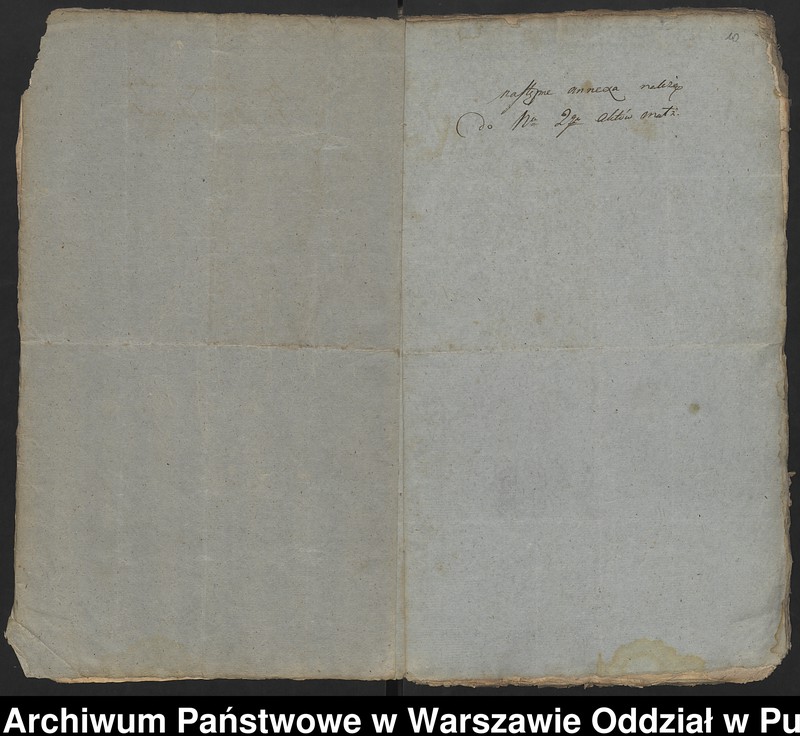 10
następne annexa należą
do Nr 2go Aktów małż.
Archiwum Państwowe w Warszawie Oddział w Pu